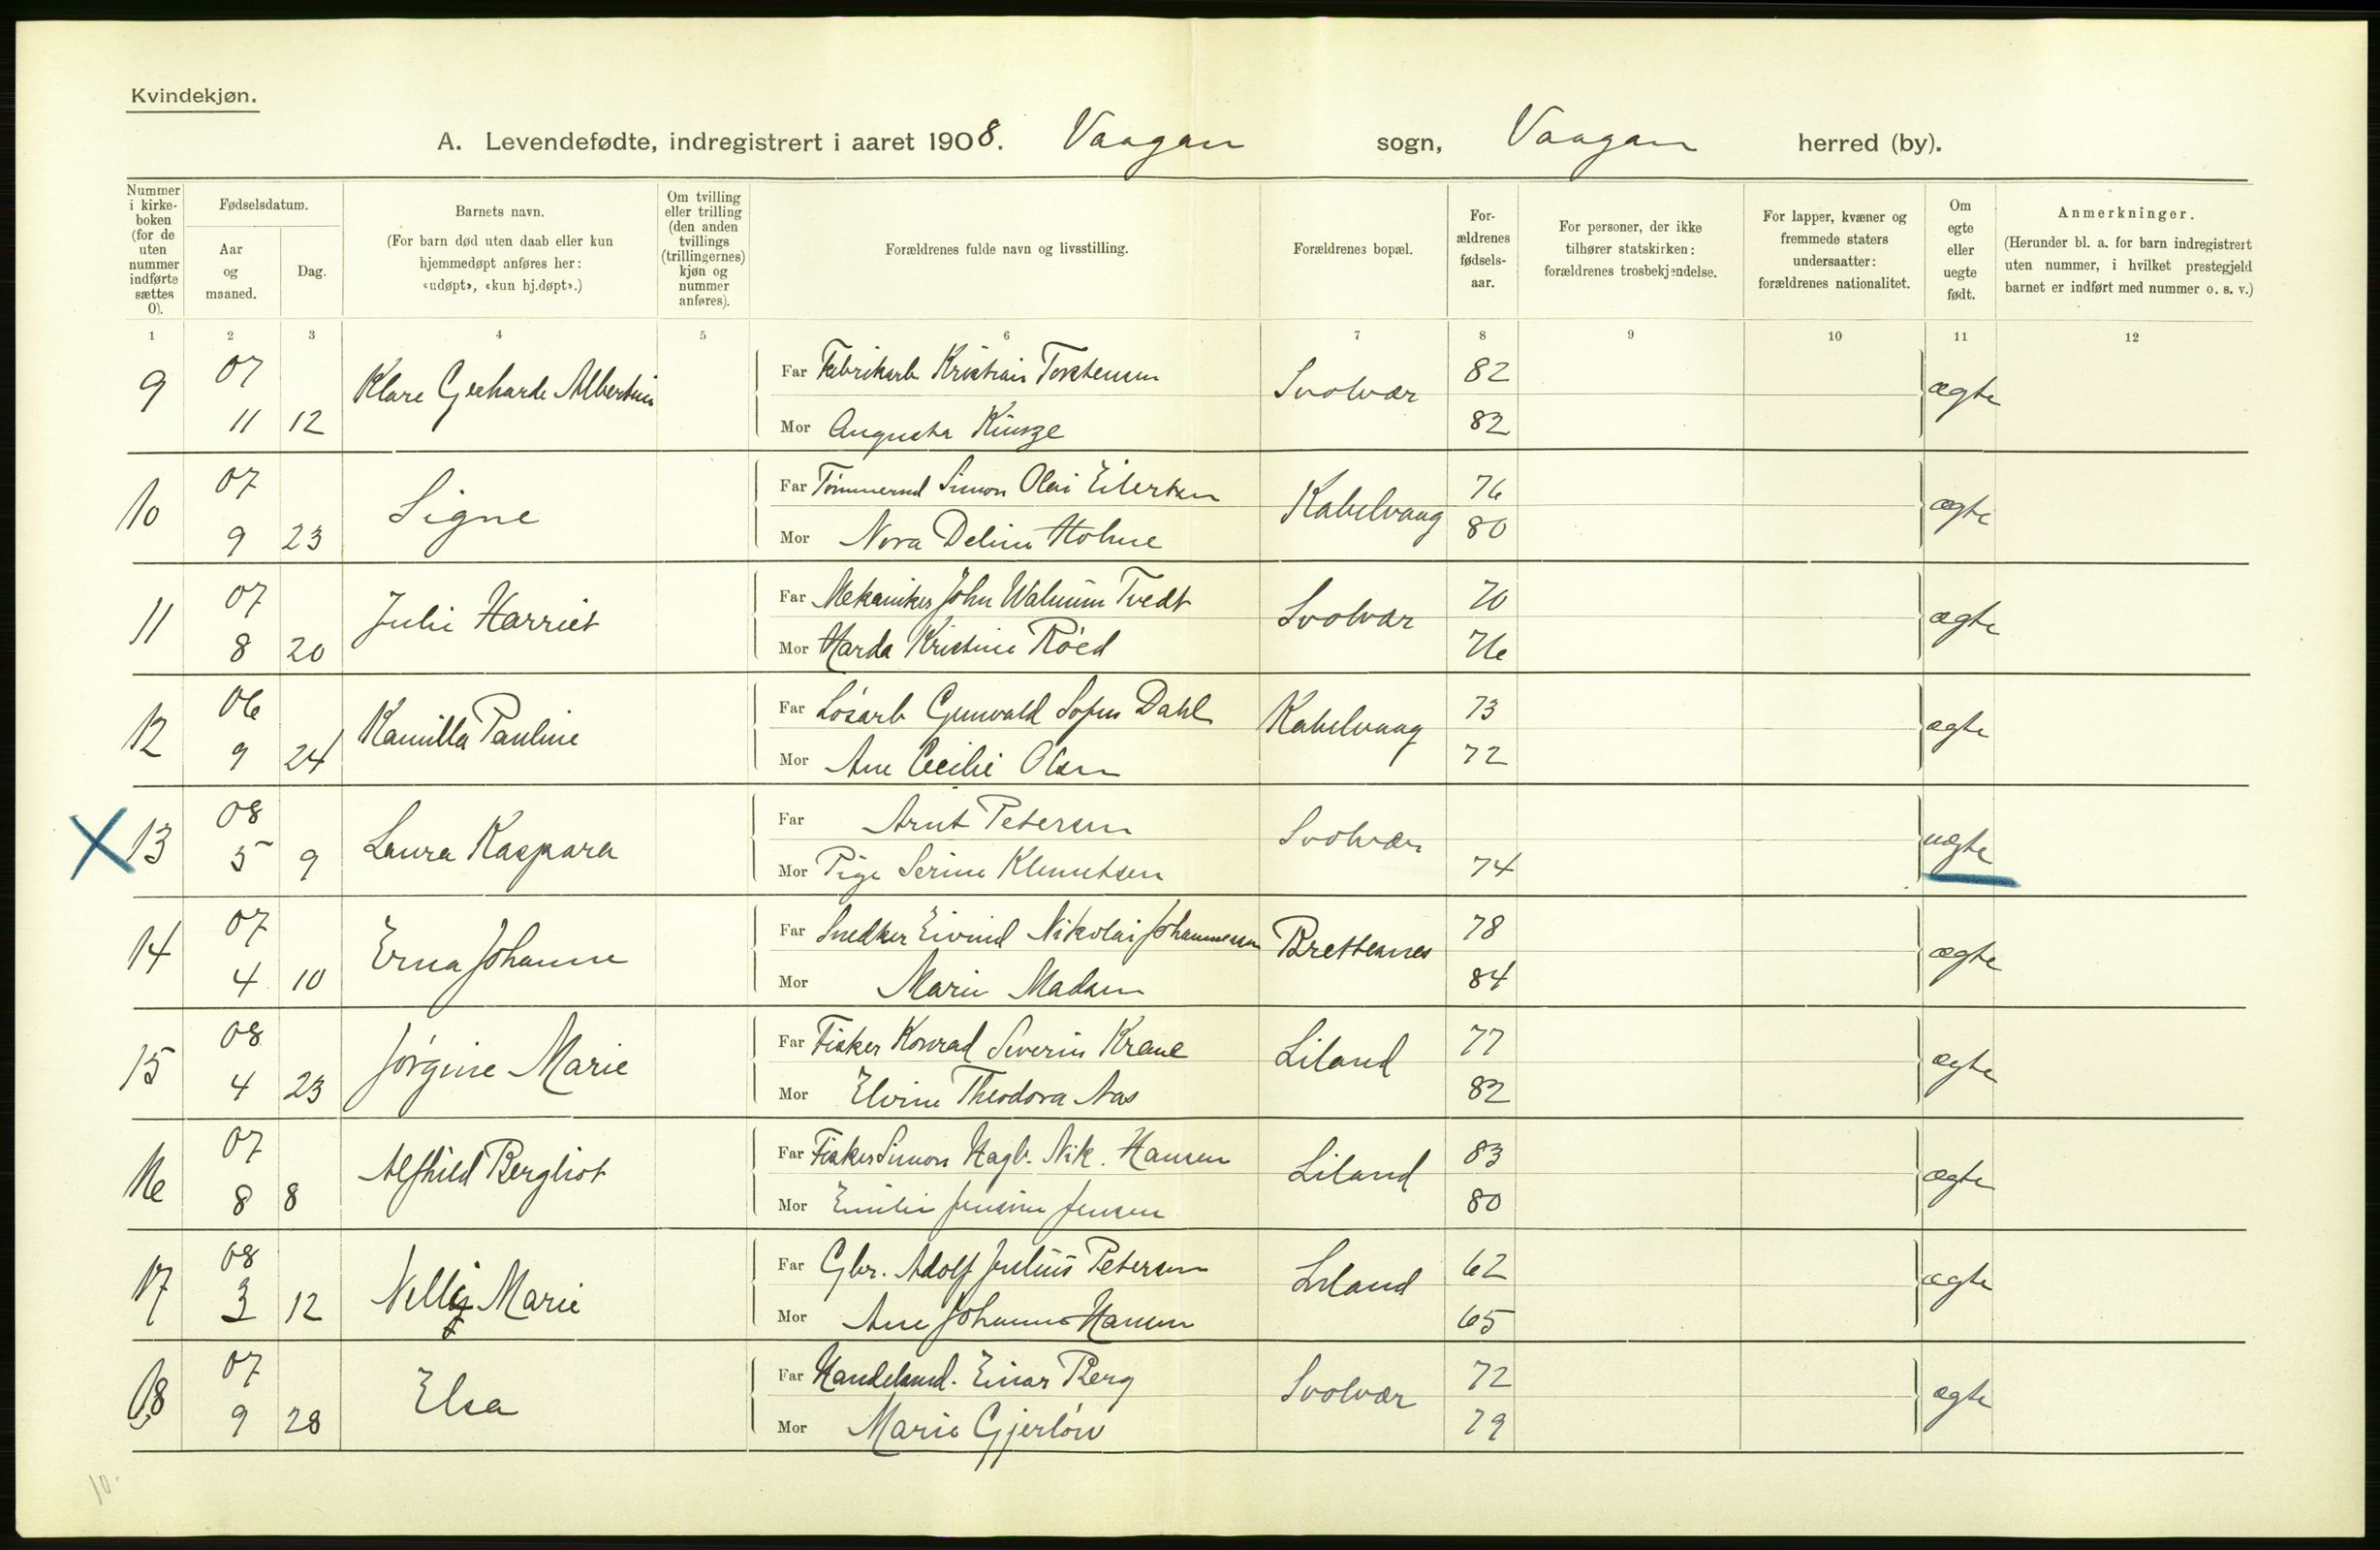 Kvindekjøn.
A. Levendefødte, indregistrert i aaret 1908. Vaagan sogn, Vaagan herred (by).
Nummer i kirke-boken (for de uten nummer indførte sættes 0).
Fødselsdatum.
Aar og maaned.
Dag.
Barnets navn.
(For barn død uten daab eller kun hjemmedøpt anføres her: «udøpt», «kun hj.døpt».)
Om tvilling eller trilling (den anden tvillings (trillingernes) kjøn og nummer anføres).
Forældrenes fulde navn og livsstilling.
Forældrenes bopæl.
For-ældrenes fødsels-aar.
For personer, der ikke tilhører statskirken: forældrenes trosbekjendelse.
For lapper, kvæner og fremmede staters undersaatter: forældrenes nationalitet.
Om egte eller uegte født.
Anmerkninger.
(Herunder bl. a. for barn indregistrert uten nummer, i hvilket prestegjeld barnet er indført med nummer o. s. v.)
1 2 3 4 5 6 7 8 9 10 11 12
9 07 Klare Gerharde Albertine Far Fabrikarb. Kristian Torstensen Svolvær 82 ægte
11 12 Mor Augusta 82
10 07 Signe Far Tømmermd Simon Olai Eilertsen Kabelvaag 76 ægte
9 23 Mor Nora Deline Holme 80
11 07 Julie Harriet Far Mekaniker John Walnum Tvedt Svolvær 70 ægte
8 20 Mor Harda Kristine Røed 76
12 06 Kamilla Pauline Far Løsarb Gunvald Sofus Dahl Kabelvaag 73 ægte
9 24 Mor Ane Cecilie Olsen 72
13 08 Laura Kaspara Far Arnt Petersen Svolvær uægte
5 9 Mor Pige Serine Klemetsen 74
14 07 Erna Johanne Far Snedker Eivind Nikolai Johannesen Brettesnes 78 ægte
4 10 Mor Marie Madsen 84
15 08 Jørgine Marie Far Fisker Konrad Severin Krane Liland 77 ægte
4 23 Mor Elvine Theodora Aas 82
16 07 Alfhild Bergliot Far Fisker Simon Hagb. Nik. Hansen Liland 83 ægte
8 8 Mor Emilie Jensine Jensen 80
17 08 Nelly Marie Far Gbr. Adolf Julius Petersen Liland 62 ægte
3 12 Mor Ane Johanne Hansen 65
18 07 Elsa Far Handelsmd. Einar Berg Svolvær 72 ægte
9 28 Mor Marie Gjerløw 79
10.